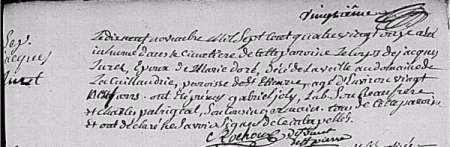 vingtième
Sep.
jacques
Juret
Le dixneuf novembre mil Sept cent quatre vingt onze a été
inhumé dans le cimetiere de cette paroisse le corps de jacques
Juret, Epoux de Marie dort, décédé la veille au domaine de
La Guillaudrie, paroisse de St Etienne, agé d'Environ vingt
ans. ont été présens gabriel joly, Lab. Son beaufrere
et charles patrigeat, Son cousin germain, tous de cette paroisse
et ont déclaré ne Savoir Signer de ce interpellés.
Rochoux